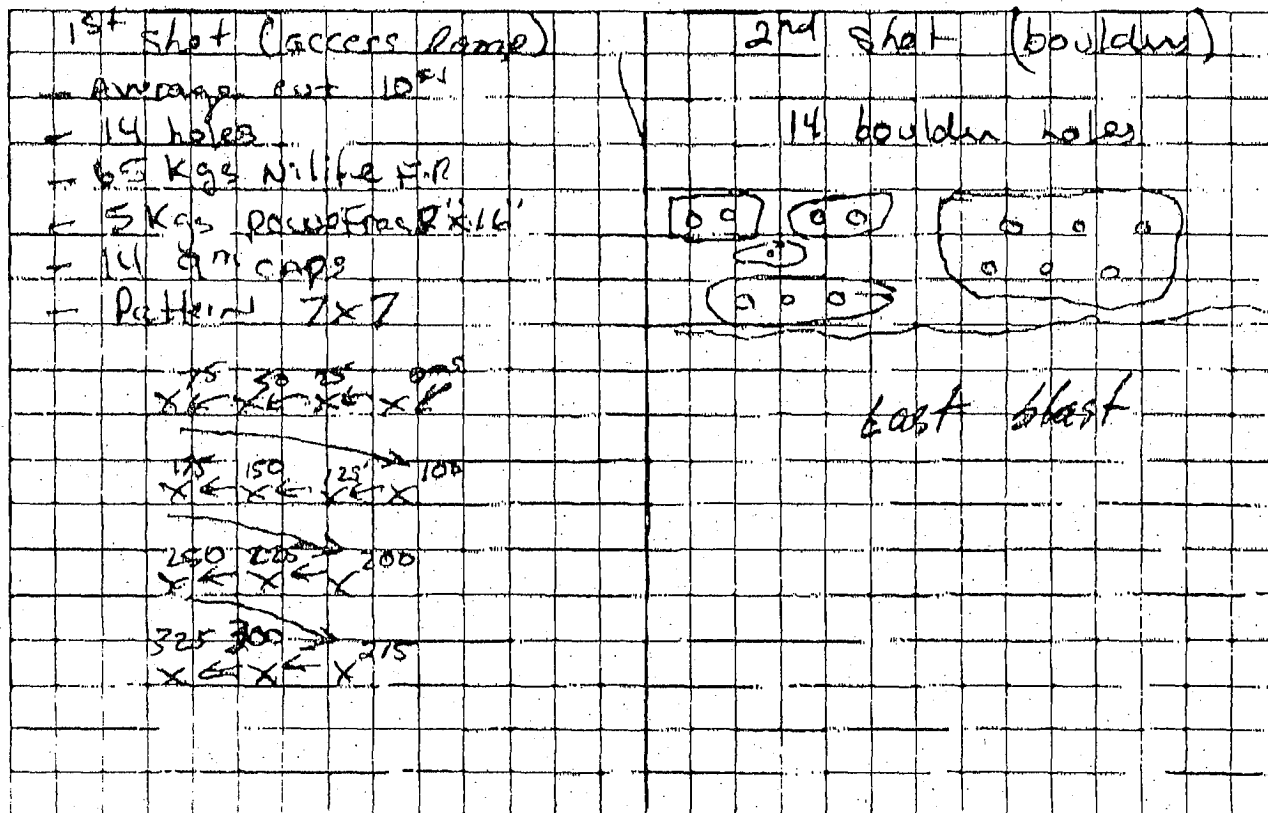 1st Shot (access Ramp)
- Average cut 10
- 14 holes
- 65 Kgs Nilite F.R
- 5 Kgs PowerFrac 2"x16"
- 14 9m caps
- Pattern 7x7
75 50 25 0ms
X ← X ← X ← X
175 150 125 100
X ← X ← X ← X
250 225 200
X ← X ← X
325 300 275
X ← X ← X
2nd Shot (boulders)
14 boulder holes
East blast